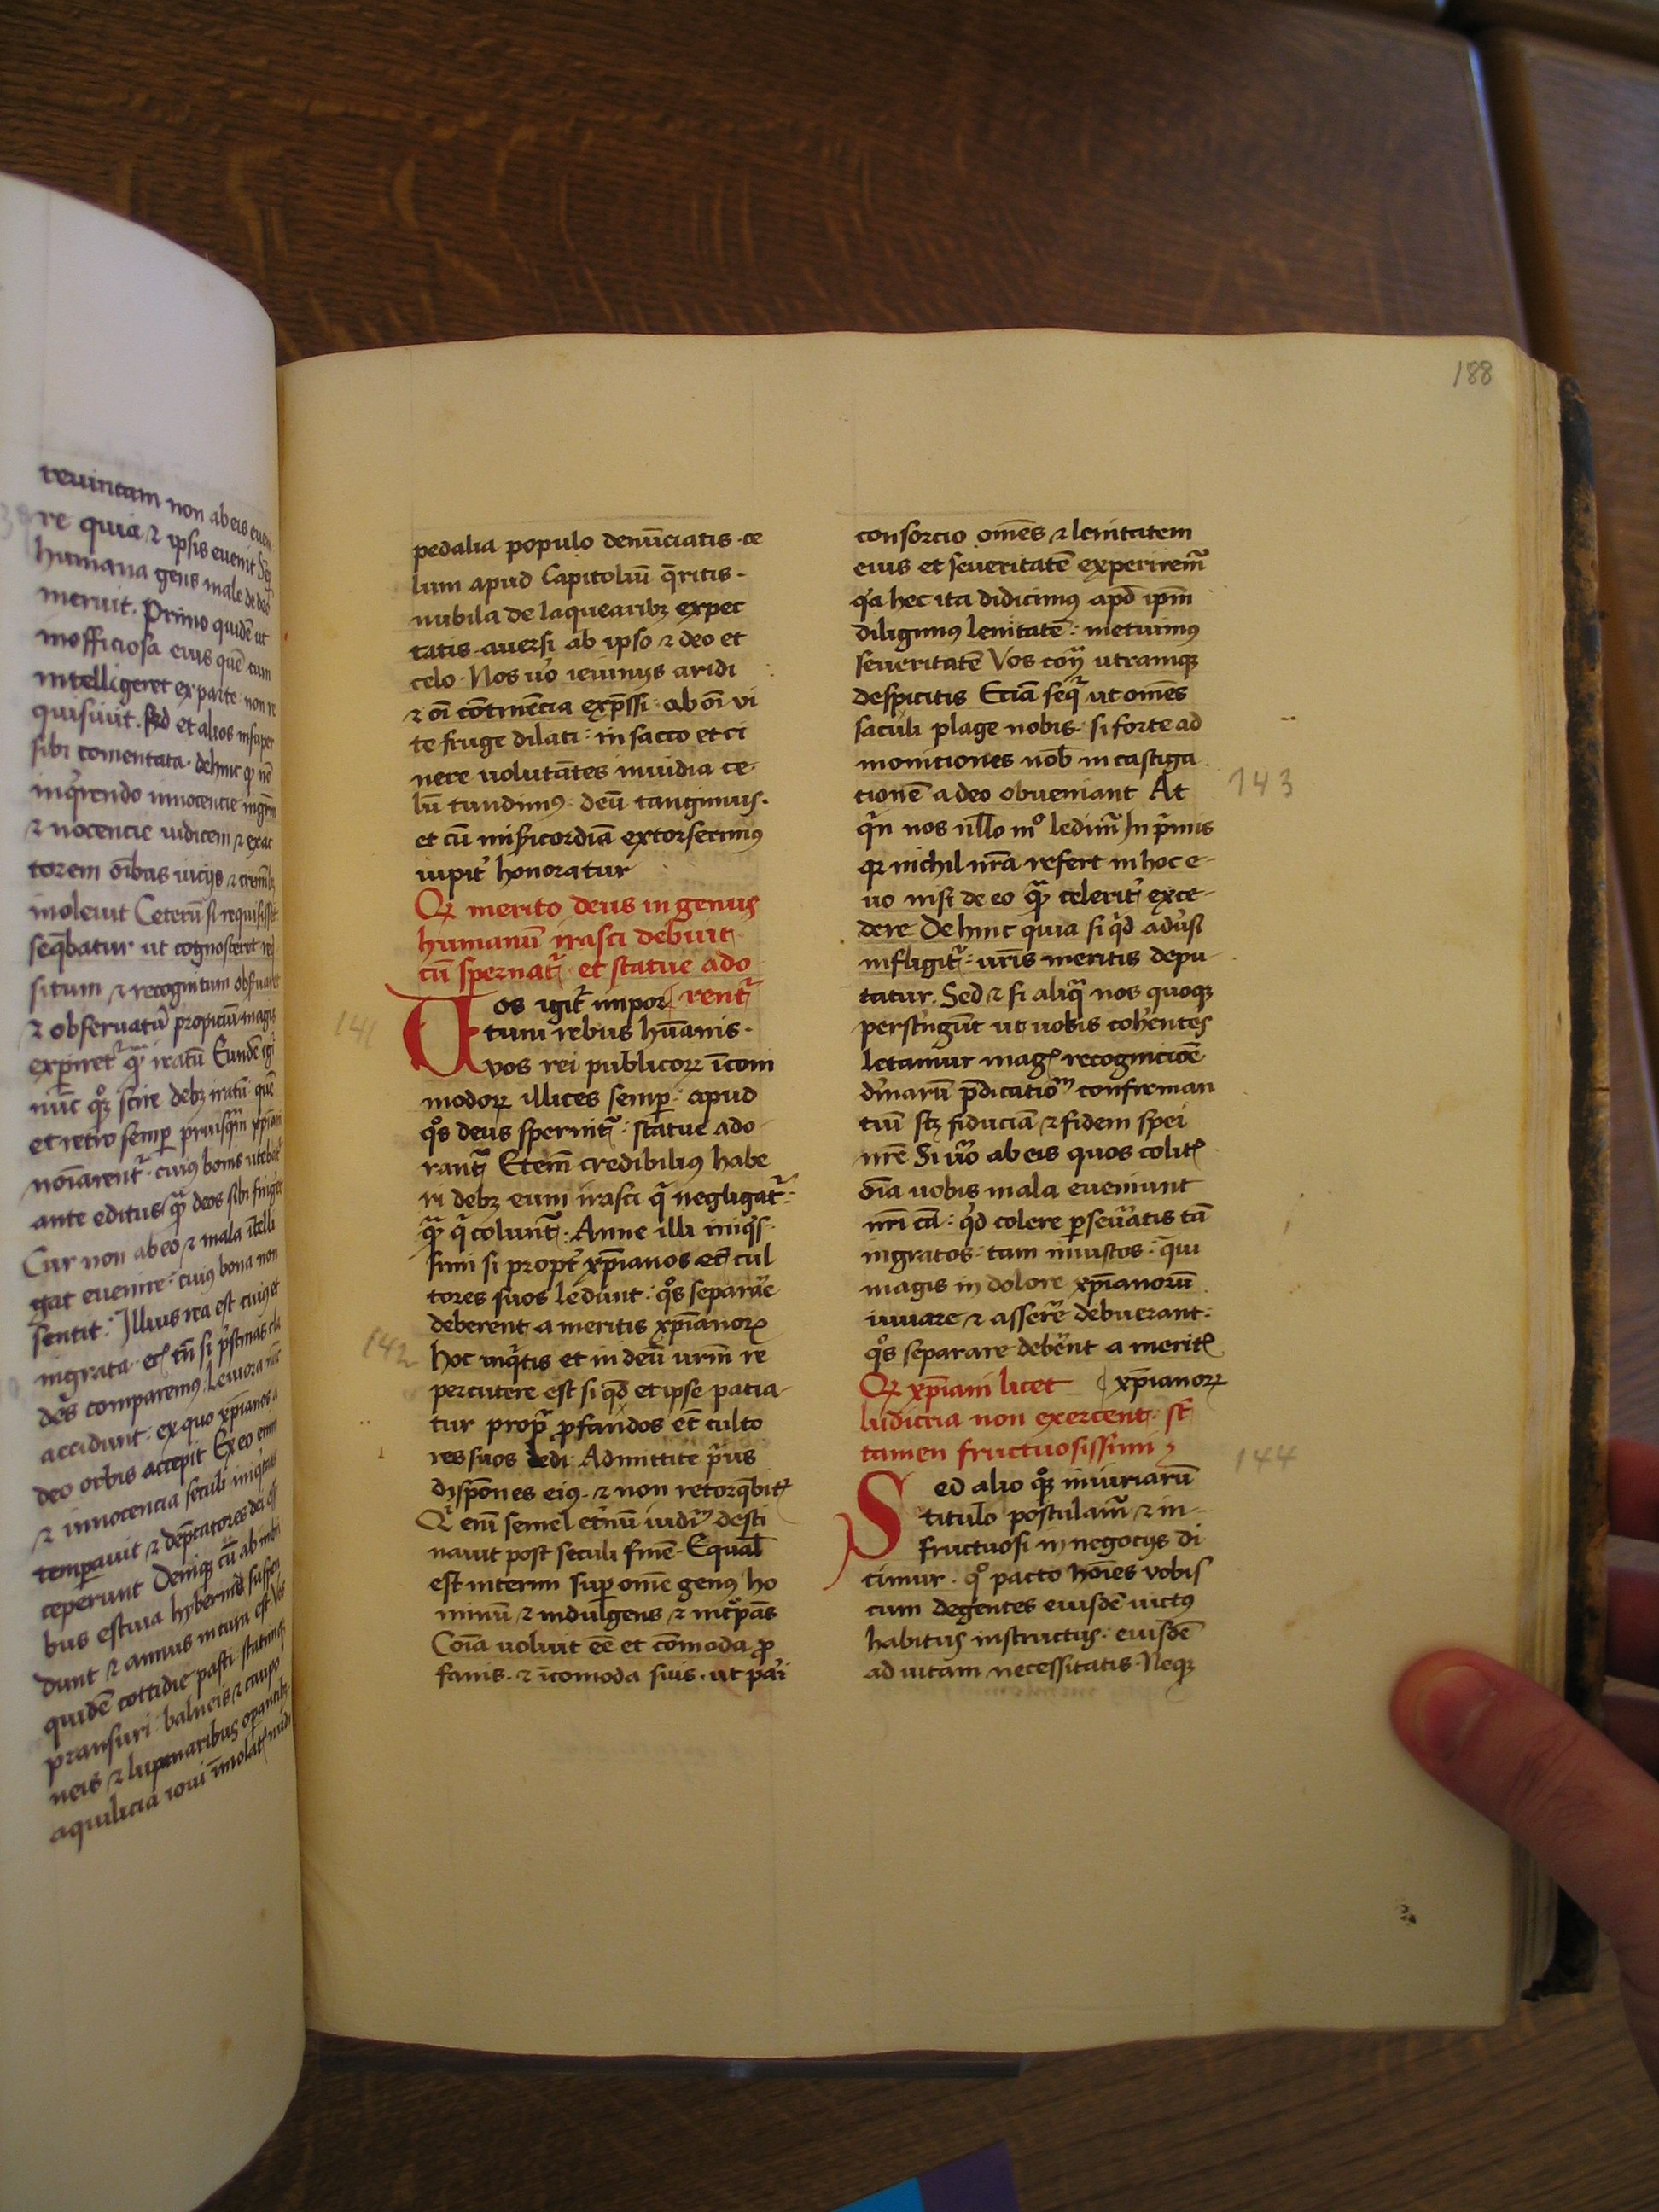 reuincam non ab eis eueni
re quia ⁊ ipsis euenit Sꝫ
humana gens male de deo
meruit. Primo quidē ut
inofficiosa eius quē cum
intelligeret ex parte non re
quisiuit. sed et alios insuper
sibi comentata. dehinc qꝫ nō
inq̄rendo innocencie
⁊ nocencie iudicem ⁊ exac
torem oīibus uicijs ⁊
inoleuit Ceterū si requisisset
seq̄batur ut cognosceret re
situm ⁊ recognitum obseruaret
⁊ obseruatū propiciū magis
expiret̉ q̄ꝫ iratū Eundē
nūc qꝫ scire debꝫ iratū quē
et retro semper priusq̄m xp̄iani
noīarent̉. cuius bonis uteba
ante editus q̄ꝫ deos sibi fing̉et
Cur non ab eo ⁊ mala ītelli
gat euenire: cuiꝰ bona non
sentit. Illius rea est cui et
ingrata. et tn̄ si p̉stinas cla
des comparemꝰ. leuiora nūc
accidunt: ex quo xp̄ianos a
deo orbis accepit Ex eo enim
⁊ innocencia seculi iniq̉tates
temperauit ⁊ dep̄catores dei
ceperunt Deniqꝫ cū ab imbri
bus estiua hyberna suspen
dunt ⁊ annus in cura est. Vos
quidē cottidie pasti statimqꝫ
pransuri. balneis ⁊ caupo
neis ⁊ lupanaribus operantibꝫ
aquilicia ioui īmolat̉ nudi
188
pedalia populo denūciatis. ce
lum apud Capitoliū q̄ritis.
nubila de laquearibꝫ expec
tatis. auersi ab ipso ⁊ deo et
celo. Nos uỏ ieiunijs aridi
⁊ oī cōtinēcia exp̄ssi. ab oī ui
te fruge dilati: in sacco et ci
nere uolutātes inuidia ce
lū tundimꝰ: deū tangimus.
et cū mis̄icordiā extorserimꝰ
iupit̉ honoratur
Qꝫ merito deus in genus
humanū irasci debuit
cū spernat̉ et statue ado
rent̉
141
Vos igit̉ impor
tuni rebus hūanis.
vos rei publicoꝝ īcom
modoꝝ illices semꝑ: apud
qͦs deus spernit̉: statue ado
rant̉ Etem̄ credibiliꝰ habe
ri debꝫ eum irasci q̄ negligat̉:
q̄ꝫ q̄ colunt̉: Anne illi iniq̉s
simi si propt̉ xp̄ianos etꝫ cul
tores suos ledunt: qͦs separar̉e
deberent a meritis xp̄ianoꝝ
142
hoc inq̉tis et in deū urm̄ re
percutere est si qd̉ et ipse patia
tur propt̉ ꝓfanos et̄ culto
res suos ledi. Admittite p̉us
dispōnes eiꝰ. ⁊ non retorq̄bit̉
Qͥ eni semel et̉nū iudiciū desti
nauit post seculi finē. Equalit̉
est interim suꝑ omē genꝰ ho
minū ⁊ indulgens ⁊ inc̉pās
Coīa uoluit eē et cōmoda ꝓ
fanis. ⁊ īcomoda suis. ut pari
consorcio omēs ⁊ lenitatem
eius et seueritatē experirem̉
qͣ hec ita didicimꝰ apd̉ ipm̄
diligimꝰ lenitatē: metuimꝰ
seueritatē Vos cōtͣ utramqꝫ
despicitis Eciā seq̉t̉ ut omēs
saculi plage nobis. si forte ad
moniciones nob̄ in castiga
cionē a deo obueniant At
143
qͥn nos nl̄lo mͦ ledim̉ In p̉mis
qꝫ nichil nrā refert in hoc e
uo nisi de eo q̄ꝫ celerit̉ exce
dere Dehinc quia si q̉d adu̓si
infligit̉: uris̄ meritis depu
tatur. Sed ⁊ si aliq̉ nos quoqꝫ
perst̉ngūt ut uobis coh̓entes
letamur mag̉ recognicioē
diuinarū p̄dicationū confirman
tiū sꝫ fiduciā ⁊ fidem spei
nrē Si uͦo ab eis quos colit̉
oīa uobis mala eueniunt
nrī cā: q̉d colere ꝑseu̓atis tā
ingratos. tam iniustos. qui
magis in dolore xp̄ianorū
iuuare ⁊ asserere debuerant:
qͦs separare deb̓ent a merit̉
xp̄ianoꝝ
Qꝫ xp̄iani licet
ludicria non exercent. sꝫ
tamen fructuosissimi ꝫ
144
Sed alio qꝫ iniuriarū
titulo postulam̉ ⁊ in
fructuosi in negocijs di
cimur. qͦ pacto hoīes vobis
cum degentes eiusdē uictꝰ
habitus instructus: eiusdē
ad uitam necessitatis. Neqꝫ